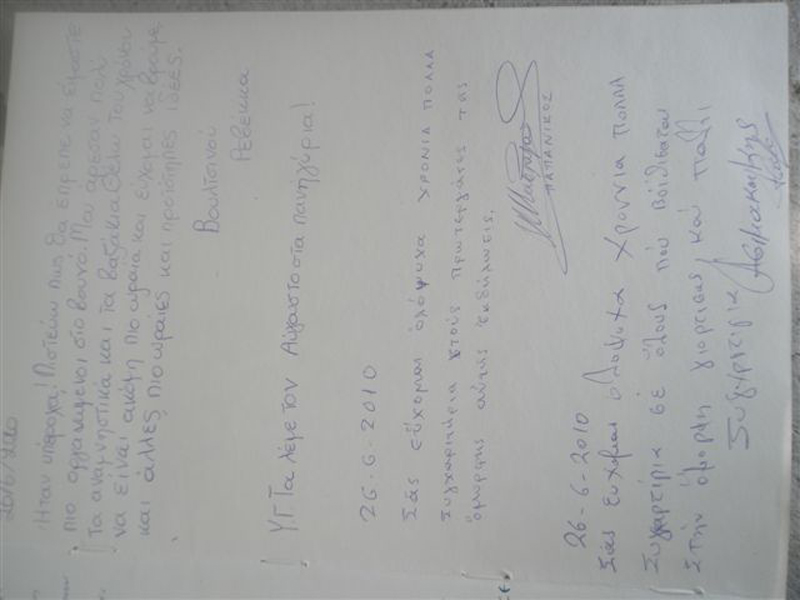 26/6/2010
Ήταν υπέροχα! Πιστεύω πως θα έπρεπε να είμαστε
πιο οργανωμένοι στο βουνό. Μου άρεσαν πολύ
τα αναμνηστικά και τα βαζάκια. Του χρόνου
να είναι ακόμη πιο ωραία και εύχομαι να βρούμε
και άλλες πιο ωραίες και πρωτότυπες ιδέες.
Βουλτσινού
Ρεβέκκα
Υ.Γ Τα λέμε τον Αύγουστο στα πανηγύρια!
26-6-2010
Σάς εύχομαι ολόψυχα χρόνια πολλά
συγχαρητήρια στούς πρωτεργάτες της
όμορφης αύτης εκδήλωσις.
ΠΑΠΑΝΙΚΟΣ
26-6-2010
Σάς ευχομαι ολοψυχα χροννια πολλα
Συχαρτίρια σέ όλους πού βοϊθισαταν
στήν όμορφη γιορτισας και παλλι
Συχαρτιρια